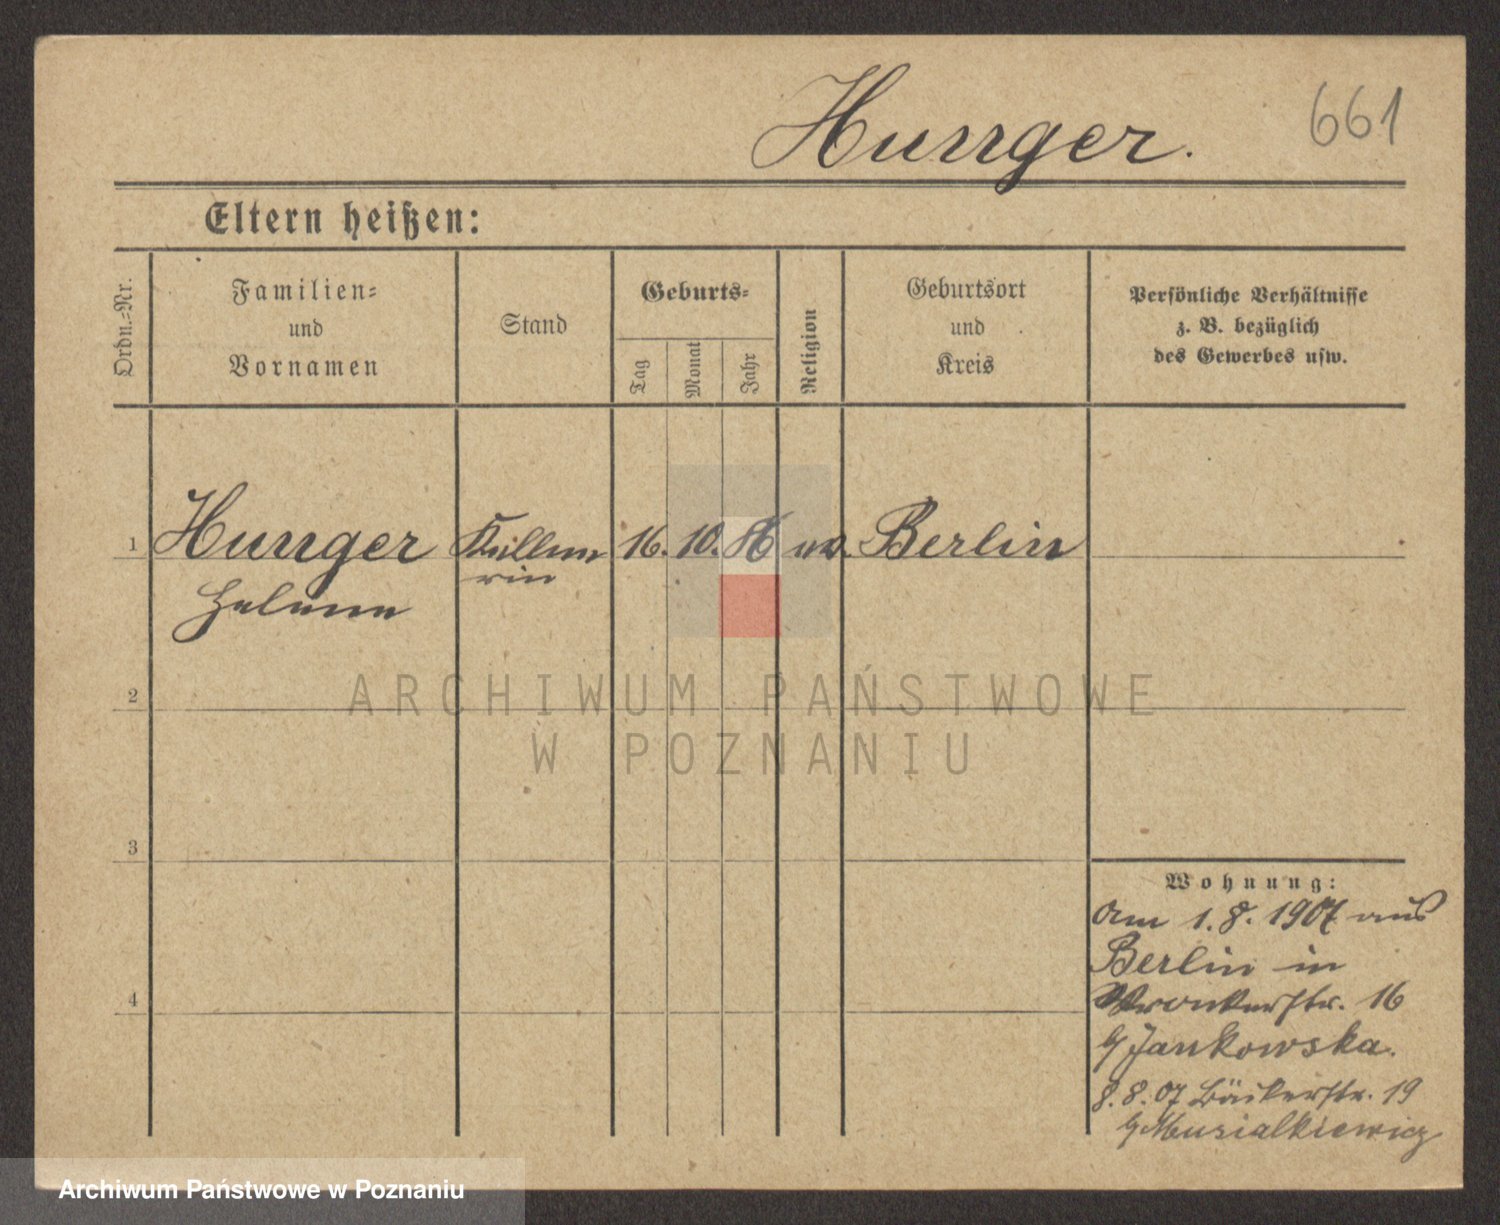 661
Hunger.
Eltern heißen:
Ordn.=Nr.
Familien=
und
Vornamen
Stand
Geburts=
Tag
Monat
Jahr
Religion
Geburtsort
und
Kreis
Persönliche Verhältnisse
z. B. bezüglich
des Gewerbes usw.
1 Hunger Kellne 16. 10. 86 ev. Berlin
Helene rin
2
ARCHIWUM PAŃSTWOWE
W POZNANIU
3
Wohnung:
am 1. 8. 1907 aus
Berlin in
4 Wronkerstr. 16
b/ Jankowska.
8. 8. 07 Bäckerstr. 19
b/ Musialkiewicz
Archiwum Państwowe w Poznaniu